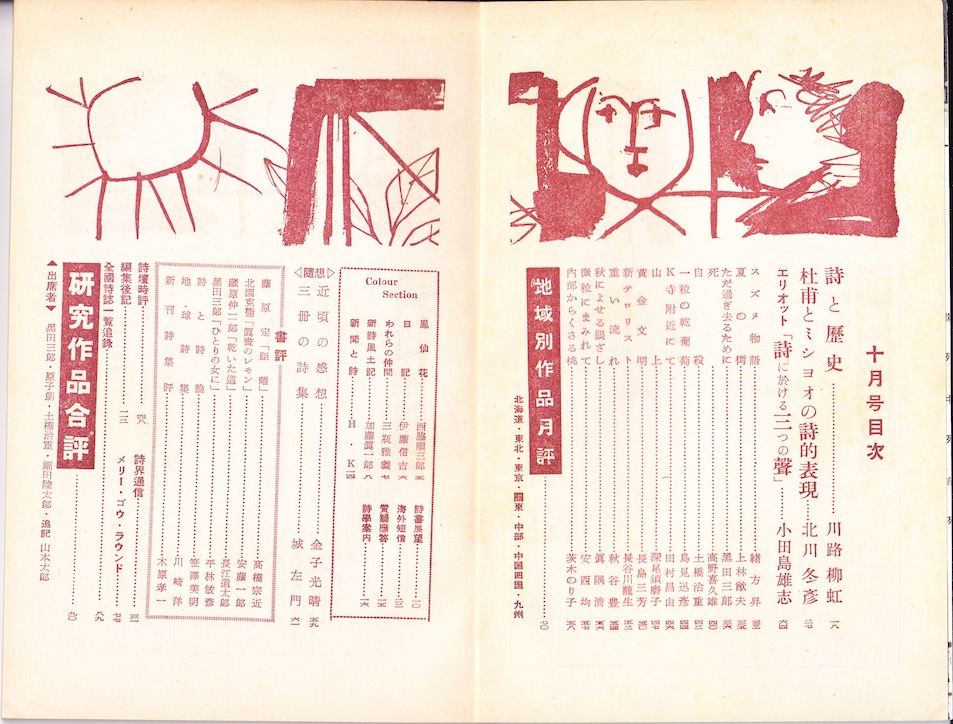 十月号目次
詩と歴史 川路柳虹 一八
杜甫とミシヨオの詩的表現 北川冬彦
エリオット「詩に於ける三つの聲」 小田島雄志
スズメ物語 緒方昇
夏の樹 上林猷夫
ただ過ぎ去るために 黒田三郎
死 高野喜久雄
自殺 土橋治重
一粒の乾葡萄 鳥見迅彦
K寺附近にて 田村昌由
山上 深尾須磨子
黄金文明 長島三芳
新テロリスト 長谷川龍生
重い流れ 秋谷豊
秋によせる眼ざし 眞隅清
微粒にまみれて 安西均
内部からくさる桃 茨木のり子
地域別作品月評 七〇
北海道・東北・東京・關東・中部・中国四国・九州
Colour
Section
鳳仙花 西脇順三郎 五
日記 伊藤信吉 六
われらの仲間 三瓶雅義 七
新詩風土記 加藤眞一郎 八
新聞と詩 H・K 一四
詩書展望 一〇
海外短信 一三
質疑應答
詩學案内 一六
◁隨想▷
近頃の感想 金子光晴 五九
三册の詩集 城左門 六一
書評
藤原定「距離」 高橋宗近
北園克衛「眞晝のレモン」 安藤一郎
蔵原伸二郎「乾いた道」 長江道太郎
黒田三郎「ひとりの女に」 平林敏彦
詩と詩論 笹澤美明
地球詩集 川崎洋
新刊詩集評 木原孝一
詩壇時評 六八
詩界通信 三一
編集後記 一三二
メリー・ゴウ・ラウンド 七七
全國詩誌一覧追錄 八九
研究作品合評 九〇
▲出席者▼ 黒田三郎・原子朗・土橋治重・鶴田陸太郎・追記 山本太郎